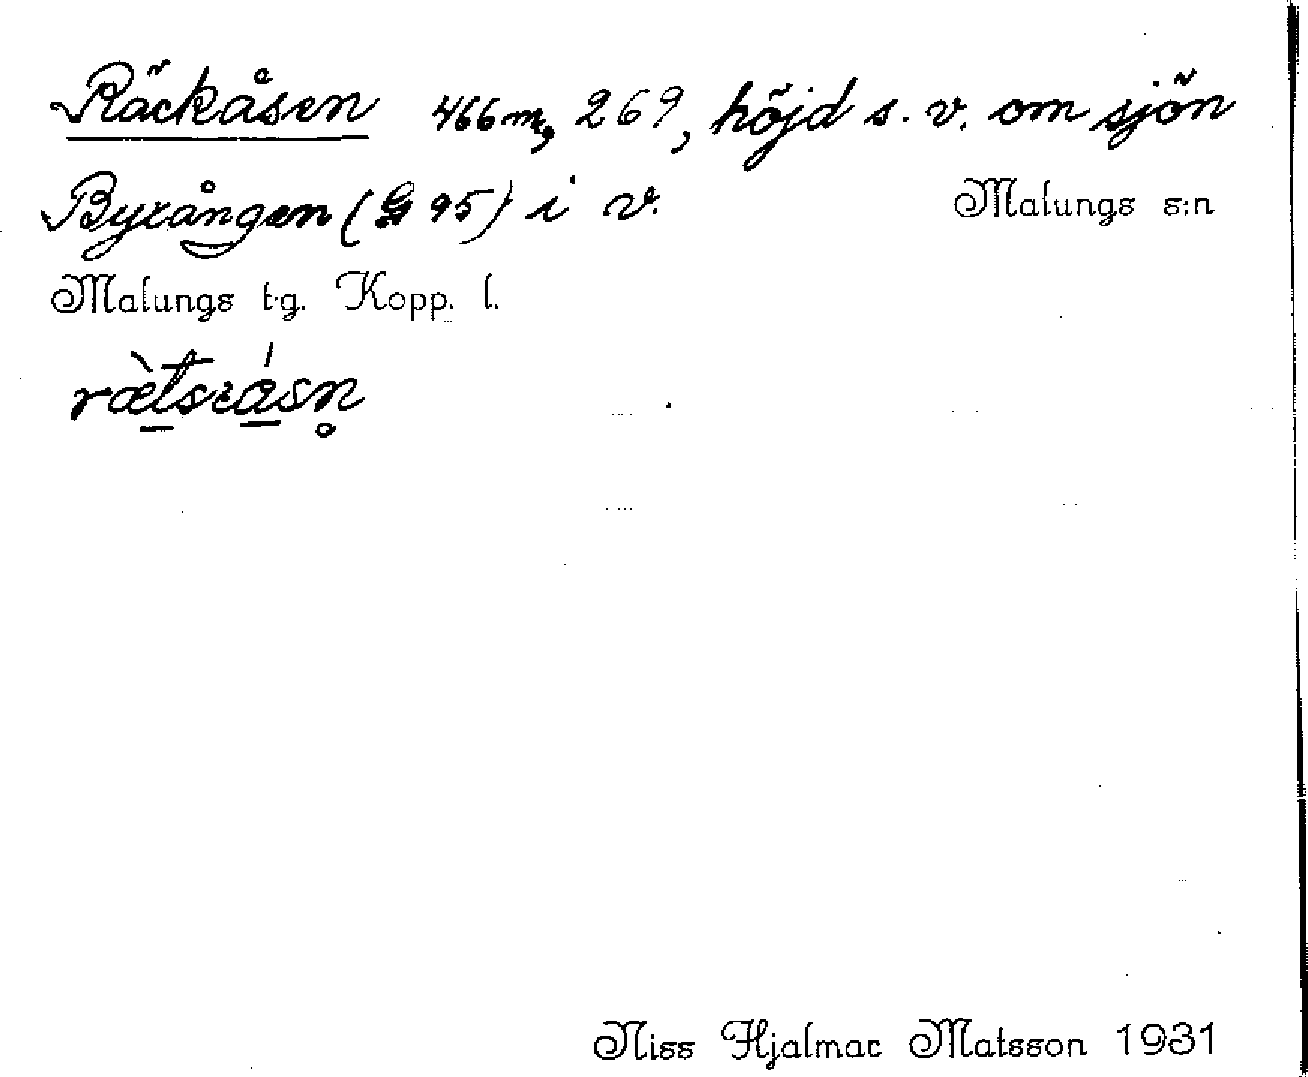 Räckåsen 466 m, 269, höjd s. v. om sjön
Byrången (G 95) i v. Malungs s:n
Malungs t.g. Kopp. l.
ræ̀tsrásn̥
Niss Hjalmar Matsson 1931